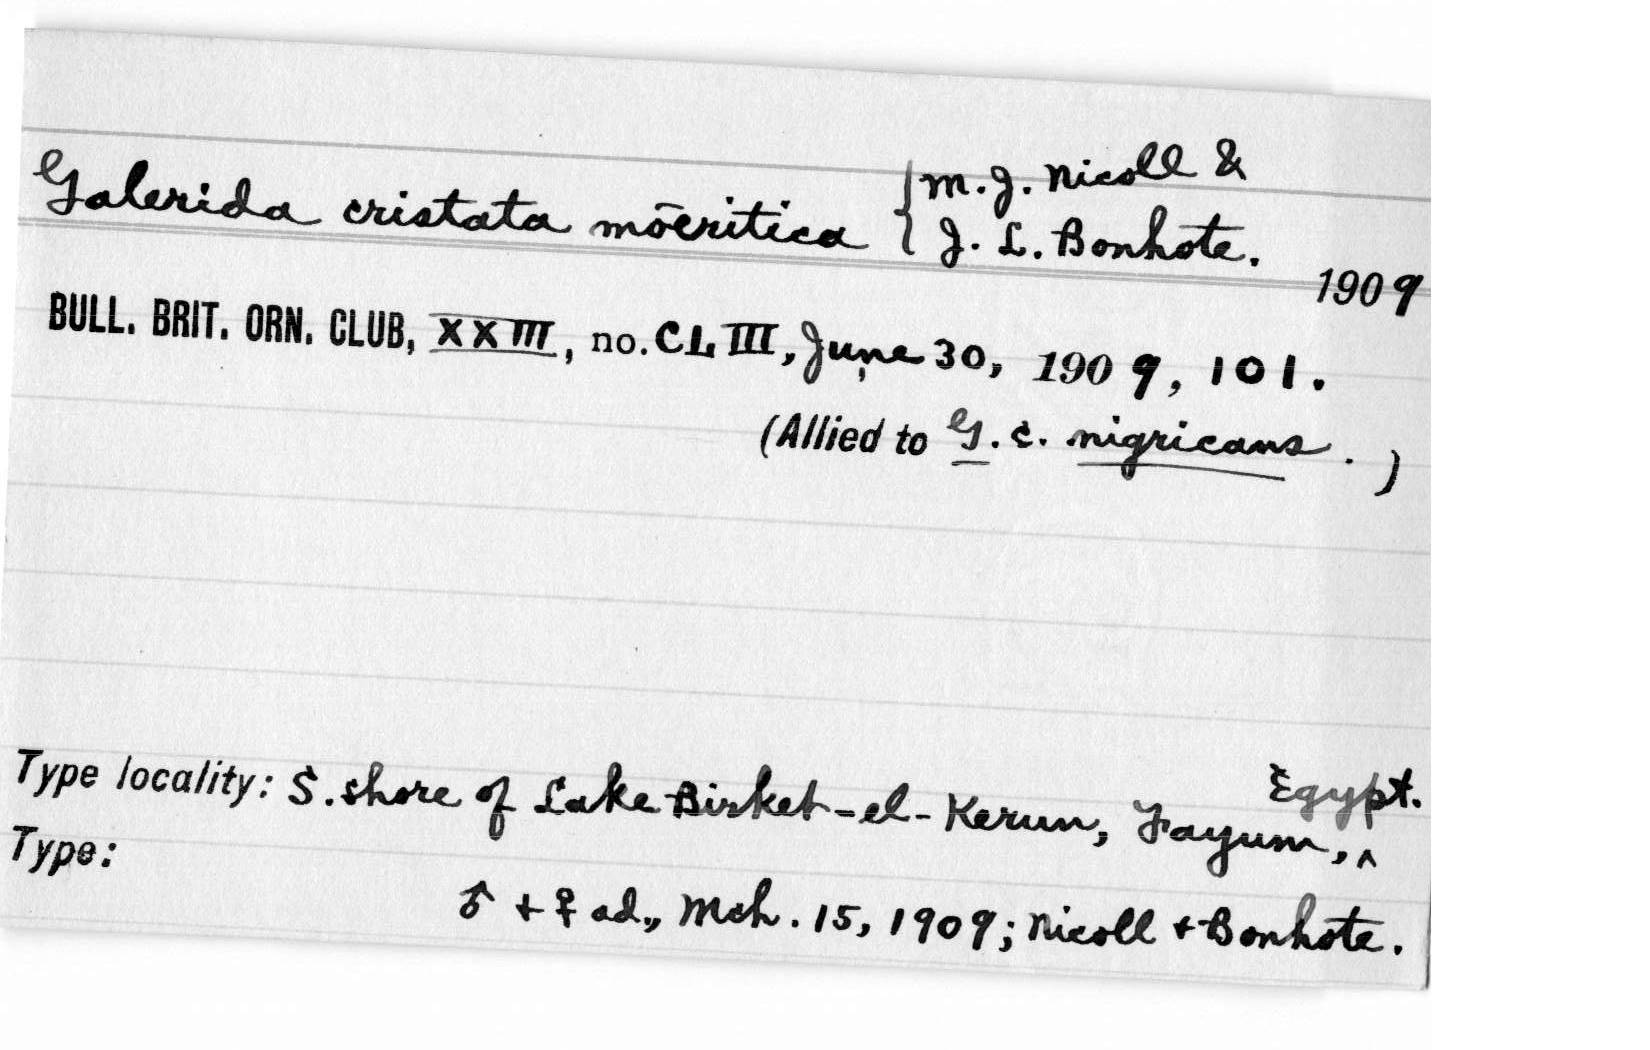 Galerida cristata mōeritica { M. J. Nicoll &
J. L. Bonhote.
1909
BULL. BRIT. ORN. CLUB, XXIII, no. CLIII, June 30, 1909, 101.
(Allied to G. c. nigricans . )
Type locality: S. shore of Lake Birket-el-Kerun, Fayum, ^ Egypt.
Type:
♂ + ♀ ad., Mch. 15, 1909; Nicoll + Bonhote.